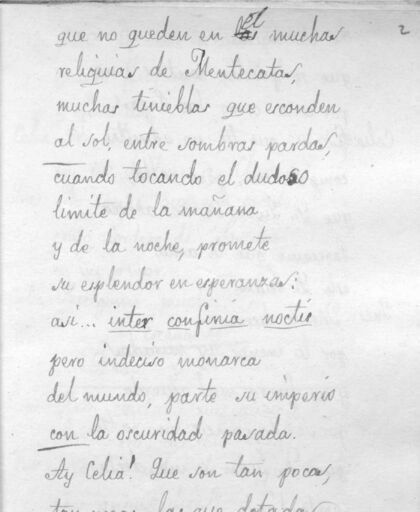 2
que no queden en el muchas
reliquias de Mentecatas,
muchas tinieblas que esconden
al sol, entre sombras pardas,
cuando tocando el dudoso
limite de la mañana
y de la noche, promete
su esplendor en esperanzas:
asi... inter confinia noctis
pero indeciso monarca
del mundo, parte su imperio
con la oscuridad pasada.
Ay Celia! Que son tan pocas,
las que dotadas